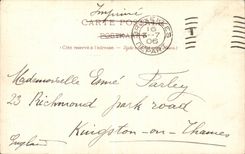 Imprimé
CARTE POSTALE
POSTKARTE
Côté réservé à l'adresse
VERSAILLES
DÉPART
16
-7
06
Mademoiselle Esmé Farley
23 Richmond Park Road
Kingston-on-Thames
England